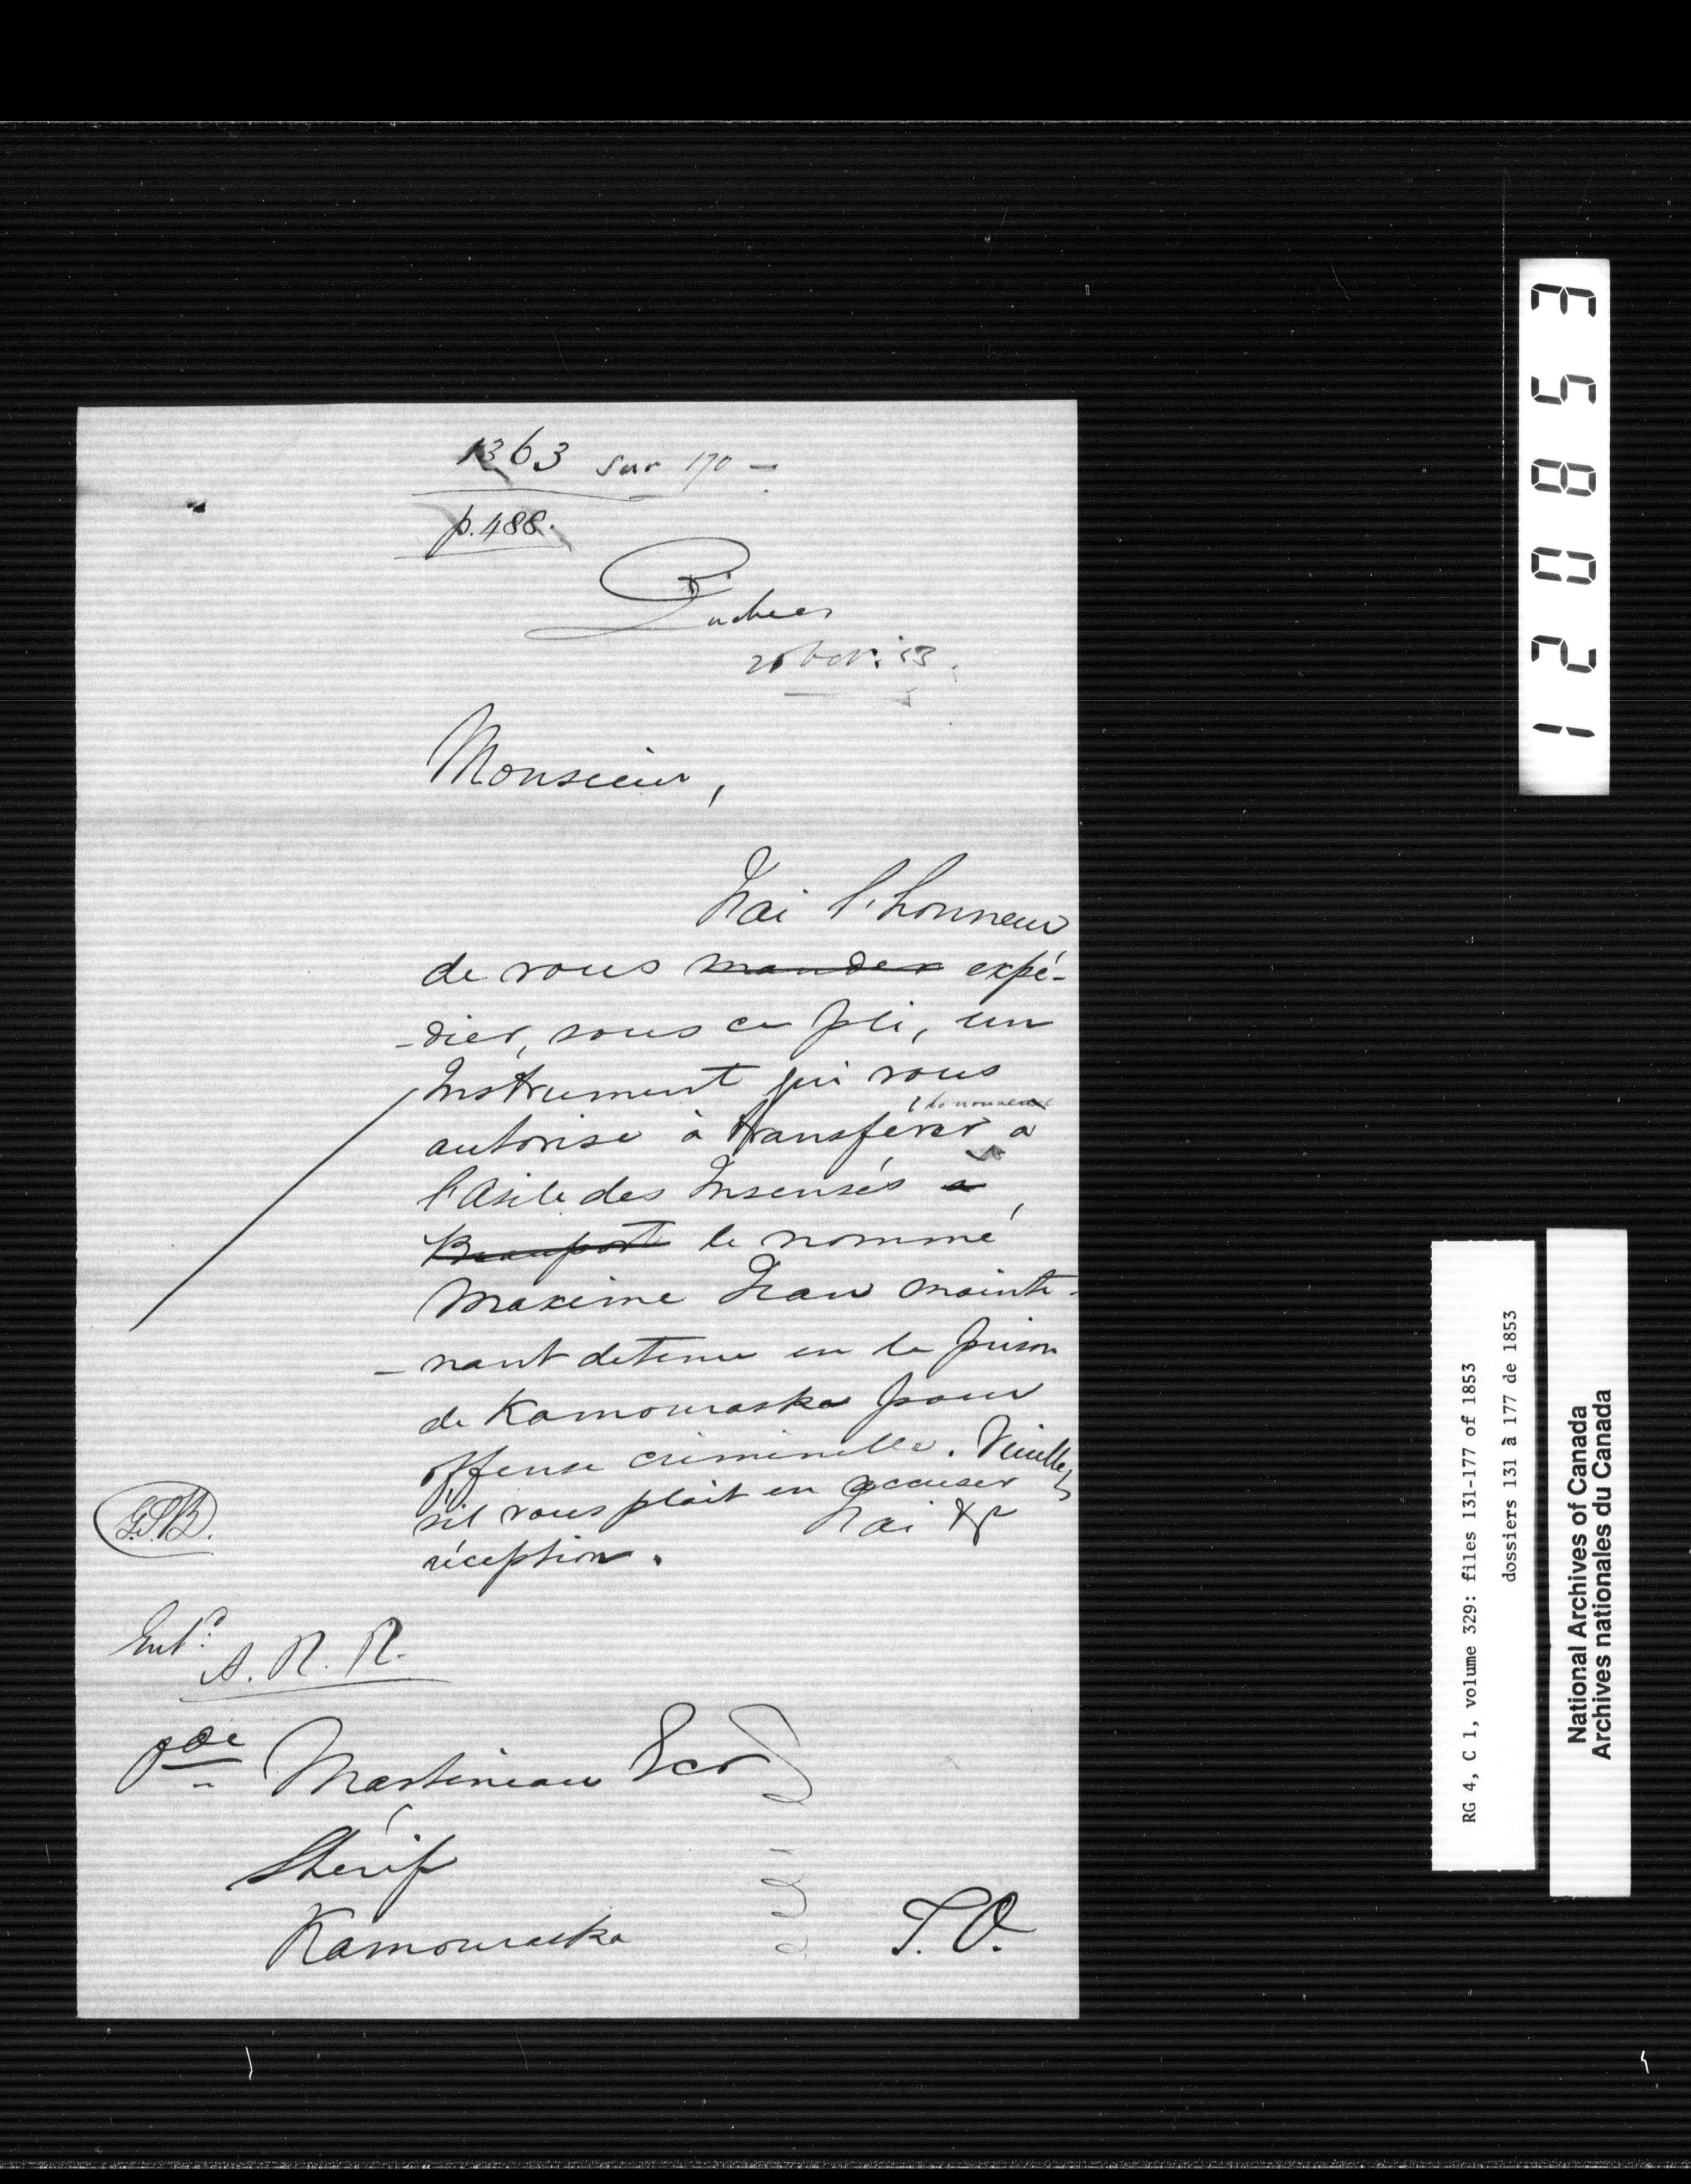 1363 sur 170 -
p. 488.
Québec
Monsieur,
J'ai l'honneur
de vous mander expé-
-dier, sous ce pli, un
Instrument qui vous
de nouveau
autorise à transférer à
l'Asile des Insensés a
Beauport le nommé
Maxime Jean mainte-
-nant detenu en la prison
de Kamouraska pour
offense criminelle. Veuillez
s'il vous plait en accuser
J'ai &c
réception.
G.S.B.
Entd.
A. R. R.
Martineau Ecr
Shérif
Kamouraska
T.O.
120853
RG 4, C 1, volume 329: files 131-177 of 1853
dossiers 131 à 177 de 1853
National Archives of Canada
Archives nationales du Canada